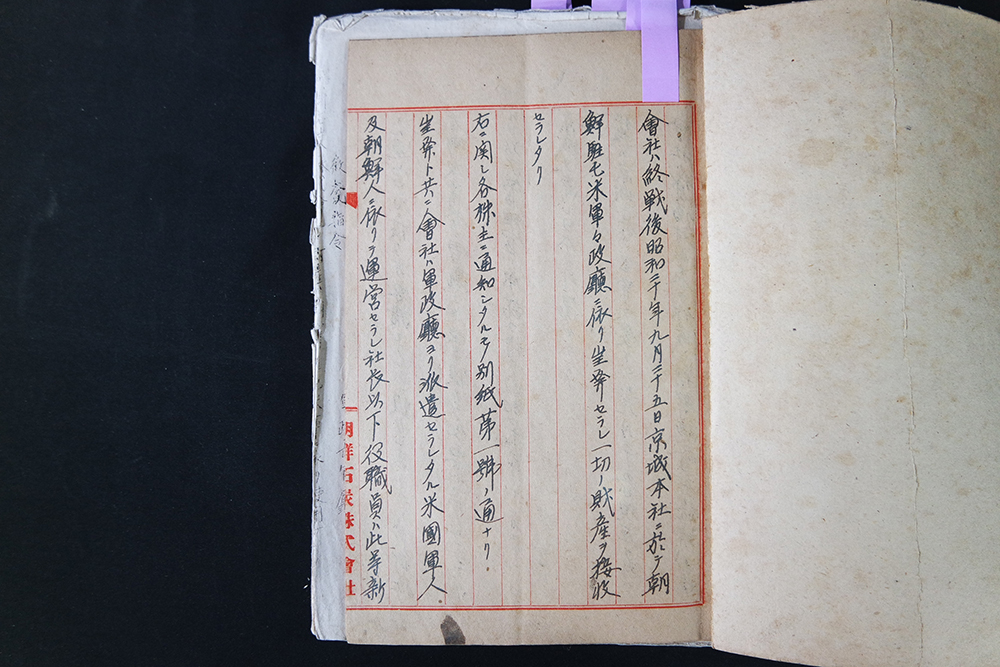 會社ハ終戰後昭和二十年九月二十五日京城本社ニ於テ朝
鮮駐屯米軍々政廳ニ依リ坐券セラレ一切ノ財産ヲ接收
セラレタリ
右ニ関シ各株主ニ通知シタルモノ別紙第一號ノ通ナリ。
坐券ト共ニ會社ハ軍政廳ヨリ派遣セラレタル米國軍人
及朝鮮人ニ依リテ運営セラレ社長以下役職員ハ此等新
朝鮮石炭株式會社